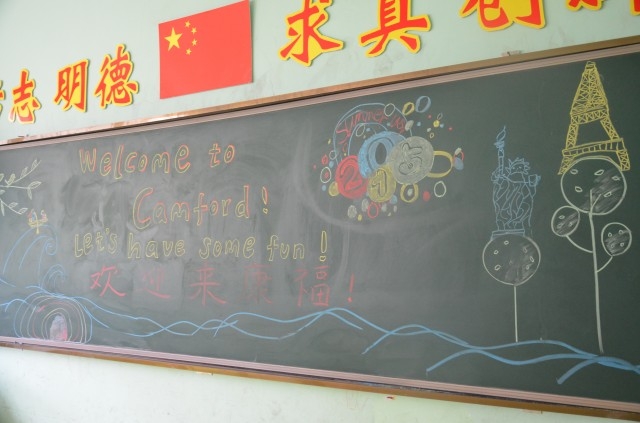 志 明德 求真 创
Welcome to
Camford!
Let's have some fun!
欢迎来康福!
Summer
2015